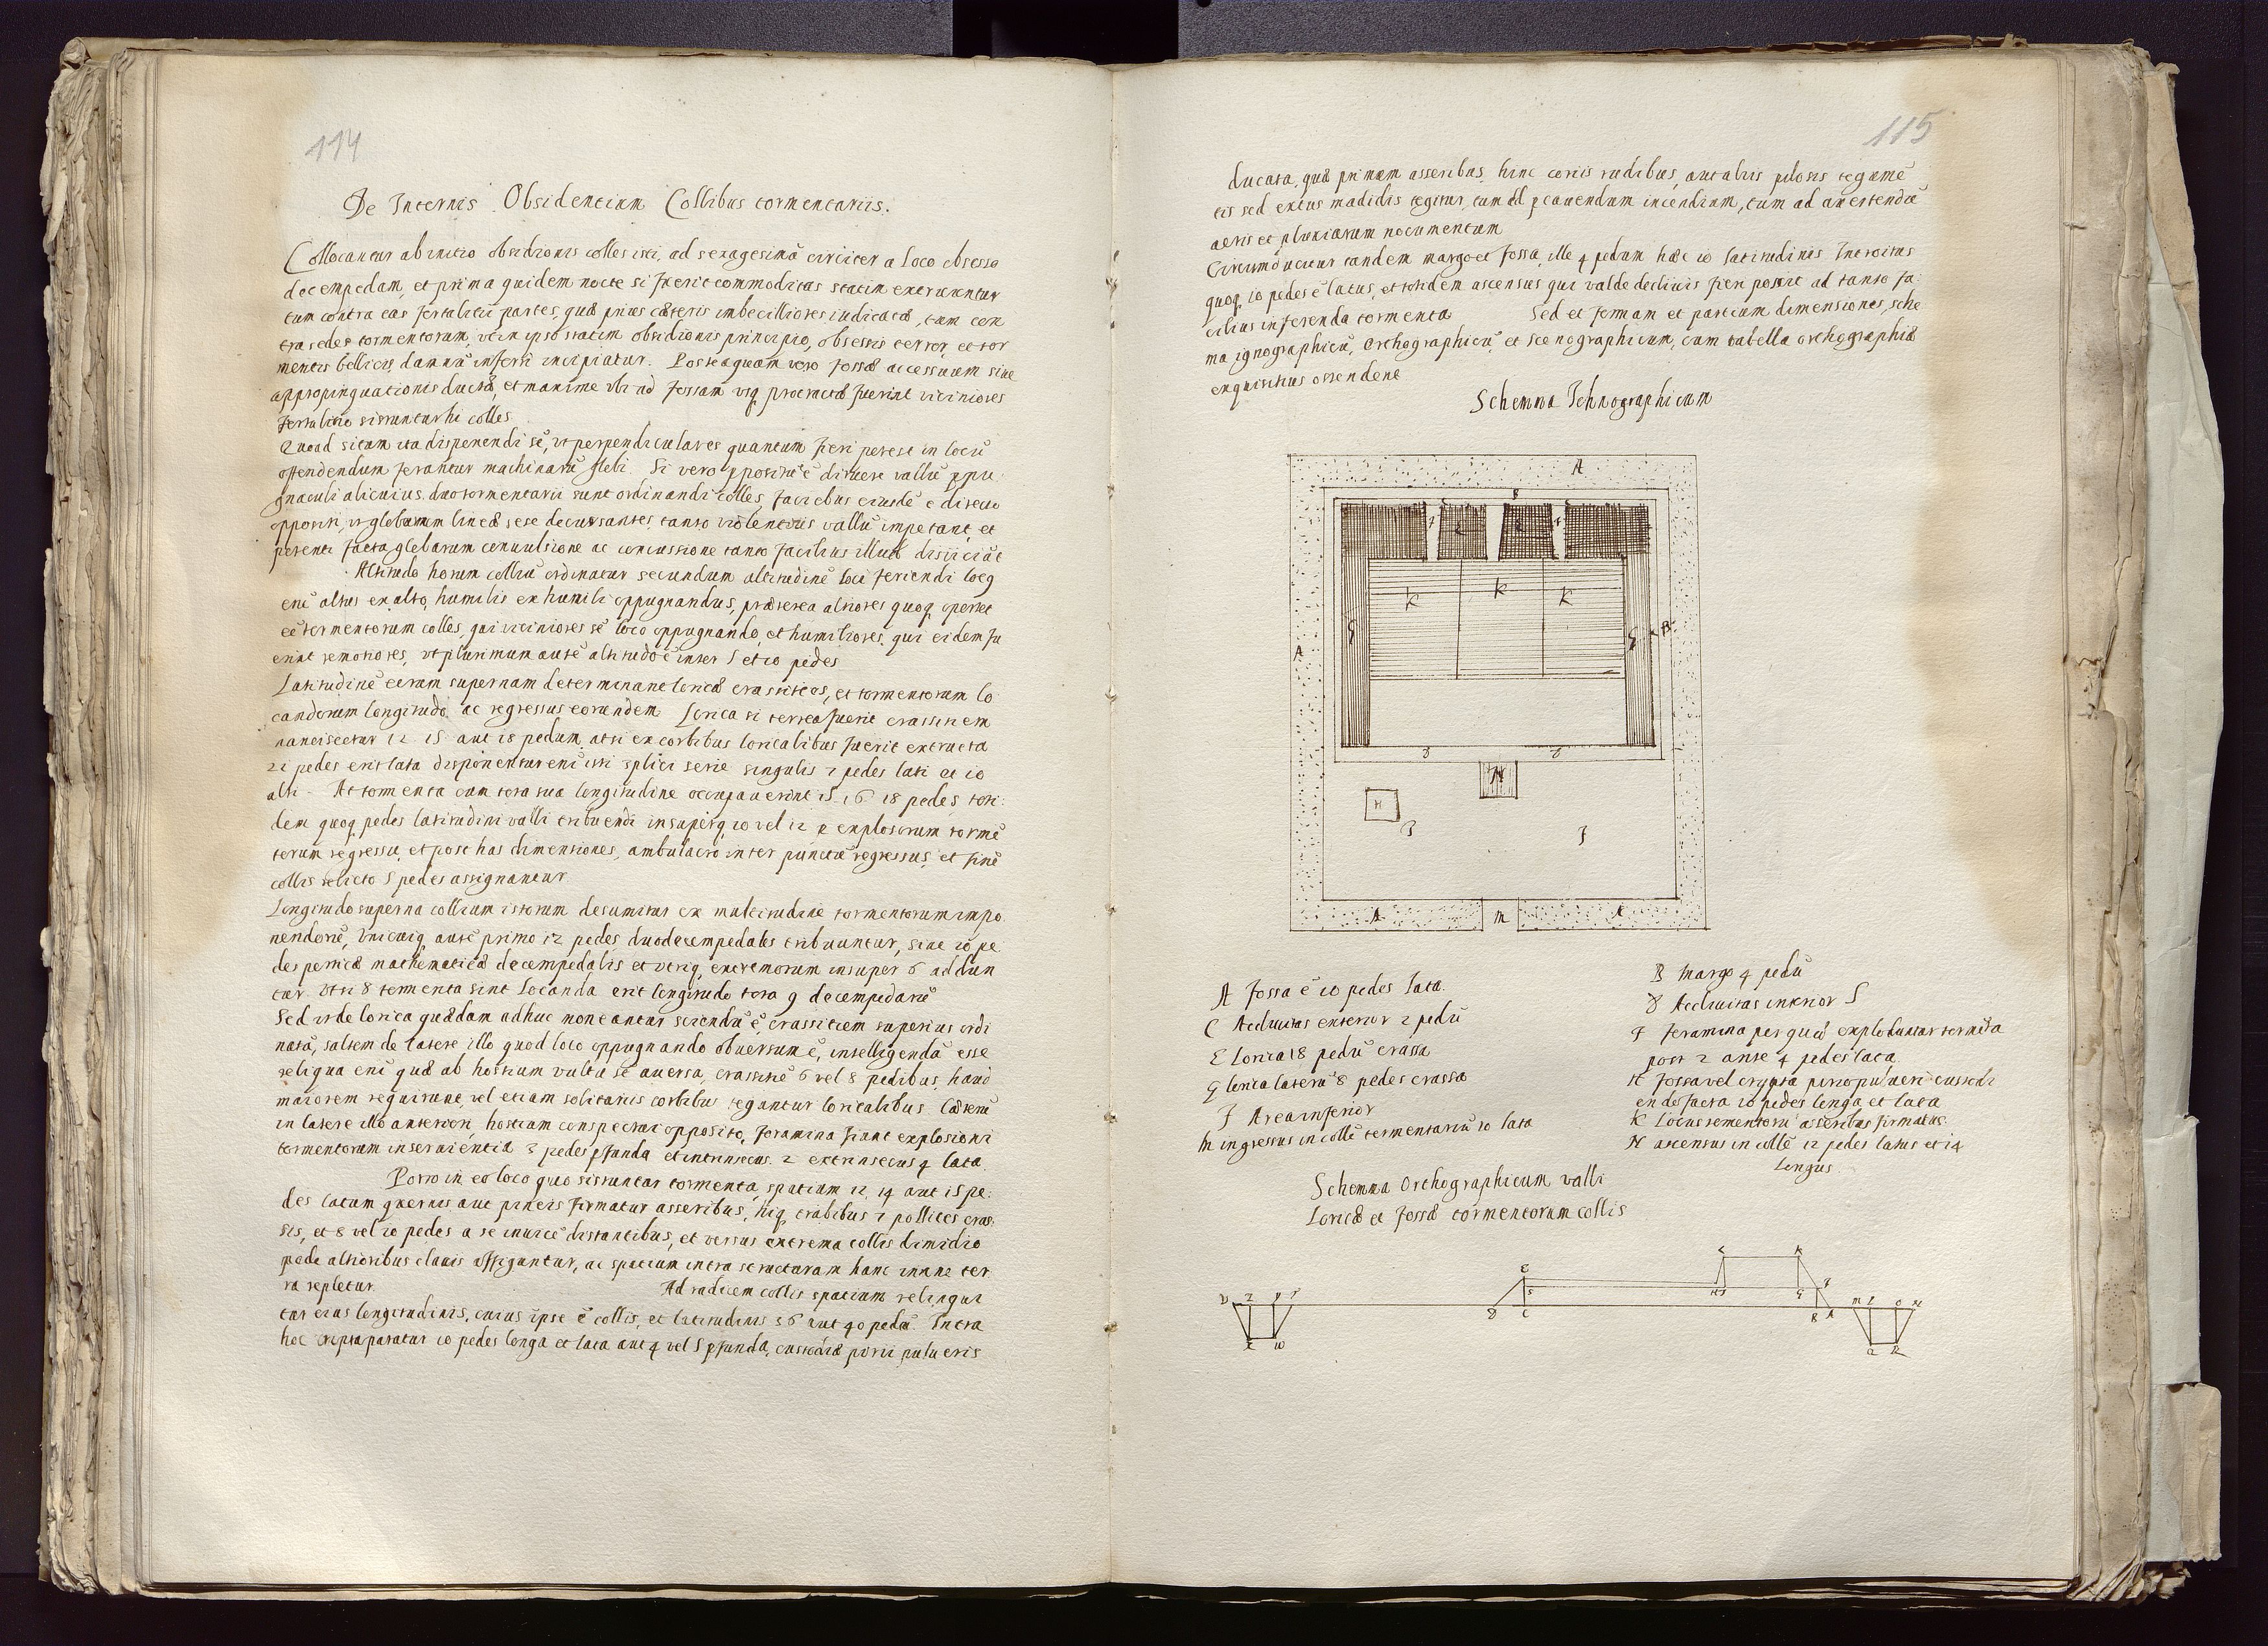 114
De Internis Obsidentium Collibus tormentariis.
Collocantur ab initio obsidionis colles isti, ad sexagesimã circiter a loco obsesso
decempedam, et prima quidem nocte si fuerit commoditas statim extruuntur
tum contra eas fortalitii partes, quæ prius cæteris imbecilliores iudicatæ, tum con
tra sedes tormentorum, ut in ipso statim obsidionis principio, obsessis terror, et tor
mentis bellicis damnũ inferri incipiatur. Posteaquam vero fossæ accessuum sive
appropinquationis ductæ, et maxime ubi ad fossam usq protractæ fuerint viciniores
fortalitio sistuntur hi colles.
Quoad situm ita disponendi sẽ, ut perpendiculares quantum fieri potest in locũ
offendendum ferantur machinarũ globi. Si vero propositũ ẽ diruere vallũ propu
gnaculi alicuius duo tormentarii sunt ordinandi colles, faciebus eiusdẽ e directo
oppositi, ut globorum lineæ sese decussantes, tanto violentius vallũ impetant, et
potenti facta glebarum convulsione ac concussione tanto facilius illud disiiciãt
Altitudo horum colliũ ordinatur secundum altitudinẽ loci feriendi locq
enĩ altus ex alto, humilis ex humili oppugnandus, præterea altiores quoq oportet
eẽ tormentorum colles, qui viciniores sẽ loco oppugnando, et humiliores, qui eidem fu
erint remotiores, ut plurimum autẽ altitudo ẽ inter 5 et 10 pedes
Latitudinẽ eoram supernam determinant loricæ crassities, et tormentorum lo
candorum longitudo ac regressus eorundem Lorica si terrea fuerit crassitiem
nanciscetur 12 15 aut 18 pedum, at si ex corbibus loricalibus fuerit extructa
21 pedes erit lata disponentur enĩ isti triplici serie singulis 7 pedes lati et 10
alti - At tormenta cum tota sua longitudine occupaverint 15 16 18 pedes, toti
dem quoq pedes latitudini valli tribuendi insuperq 10 vel 12 p explosorum tormẽ
torum regressu, et post has dimensiones, ambulacro inter punctũ regressus, et finẽ
collis relicto 5 pedes assignantur
Longitudo superna collium istorum desumitur ex multitudine tormentorum impo
nendorũ, Unicuiq autẽ primo 12 pedes duodecempedales tribuuntur, sive 10 pe
des perticæ mathematicæ decempedalis et utriq extremorum insuper 6 addun
tur. Ut si 8 tormenta sint locanda erit longitudo tota 9 decempedarũ
Sed ut de lorica quædam adhuc moneantur sciendũ ẽ crassitiem superius ordi
natã, saltem de latere illo quod loco oppugnando obversum ẽ, intelligendã esse
reliqua enĩ quæ ab hostium vultu sẽ aversa, crassitiẽ 6 vel 8 pedibus, haud
maiorem requirunt, vel etiam solitariis corbibus teguntur loricalibus Cæterũ
in latere illo anteriori hostium conspectui opposito, foramina fiunt explosioni
tormentorum inservientia 3 pedes pfunda et intrinsecus 2 extrinsecus 4 lata.
Porro in eo loco quo sistuntur tormenta, spatium 12, 14 aut 15 pe:
des latum quernis aut pineis firmatur asseribus, hiq trabibus 7 pollices cras
sis, et 8 vel 10 pedes a se invicẽ distantibus, et versus extrema collis dimidio
pede altioribus clavis affiguntur, ac spatium intra structuram hanc inane ter
ra repletur. Ad radicem collis spatium relinqui
tur eius longitudinis, cuius ipse ẽ collis, et latitudinis 36 aut 40 pedũ. Intra
hoc crypta paratur 10 pedes longa et lata aut 4 vel 5 pfunda, custodiæ pirii pulveris
115
ducata, quæ primum asseribus, hinc coriis rudibus, aut aliis pilosis tegumẽ
tis sed extus madidis tegitur, tum ad præcavendum incendium, tum ad avertendũ
aeris et pluviarum nocumentum
Circumducitur tandem margo et fossa, ille 4 pedum hæc 10 latitudinis Introitus
quoq 10 pedes ẽ latus, et totidem ascensus qui valde declivis fieri possit ad tanto fa:
cilius inferenda tormenta Sed et formam et partium dimensiones, sche
ma ignographicũ, Orthographicũ, et scenographicum, cum tabella orthographiæ
exquisitius ostendent
Schemma Ichnographicum
A
B
F
E
E
F
K
K
K
G
G
A
B
D
D
N
H
I
I
A
M
A
A Fossa ẽ 10 pedes lata.
C Acclivitas exterior 2 pedũ
E Lorica 18 pedũ crassa
G lorica laterũ 8 pedes crassa
I Area inferior
M ingressus in collẽ tormentariũ 10 lata
B Margo 4 pedũ
D Acclivitas interior 5
F Foramina per quæ exploduntur tormẽta
post 2 ante 4 pedes lata
H Fossa vel crypta pirio pulveri custodi
endo facta 10 pedes longa et lata
K Locus tormentorũ asseribus firmatus.
N ascensus in collẽ 12 pedes latus et 14
longus
Schemma Orthographicum valli
Loricæ et fossæ tormentorum collis